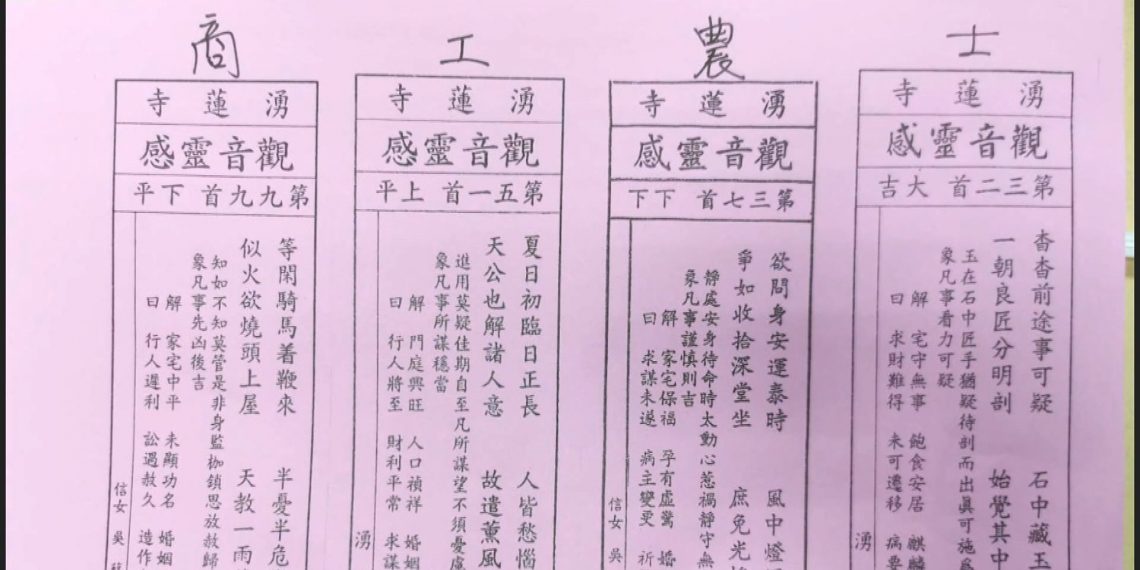 士
湧蓮寺
觀音靈感
第三二首 大吉
杳杳前途事可疑 石中藏玉
一朝良匠分明剖 始覺其中
玉在石中匠手猶疑待剖而出眞可施爲
象凡事看力可疑
解 宅守無事 飽食安居 麒麟
曰 求財難得 未可遷移 病要
湧
農
湧蓮寺
觀音靈感
第三七首 下下
欲問身安運泰時 風中燈
爭如收拾深堂坐 庶免光
靜處安身待命時太動心惹禍靜守無
象凡事謹慎則吉
解 家宅保福 孕有虛驚 婚
曰 求謀未遂 病主變更 祈
信女 吳
工
湧蓮寺
觀音靈感
第五一首 上平
夏日初臨日正長 人皆愁惱
天公也解諸人意 故遣薰風
進用莫疑佳期自至凡所謀望不須憂慮
象凡事所謀穩當
解 門庭興旺 人口禎祥 婚姻
曰 行人將至 財利平常 求謀
湧
商
湧蓮寺
觀音靈感
第九九首 下平
等閑騎馬着鞭來 半憂半危
似火欲燒頭上屋 天教一雨
知如不知莫管是非身監枷鎖思放赦歸
象凡事先凶後吉
解 家宅中平 未顯功名 婚姻
曰 行人遲利 訟過赦久 造作
信女 吳